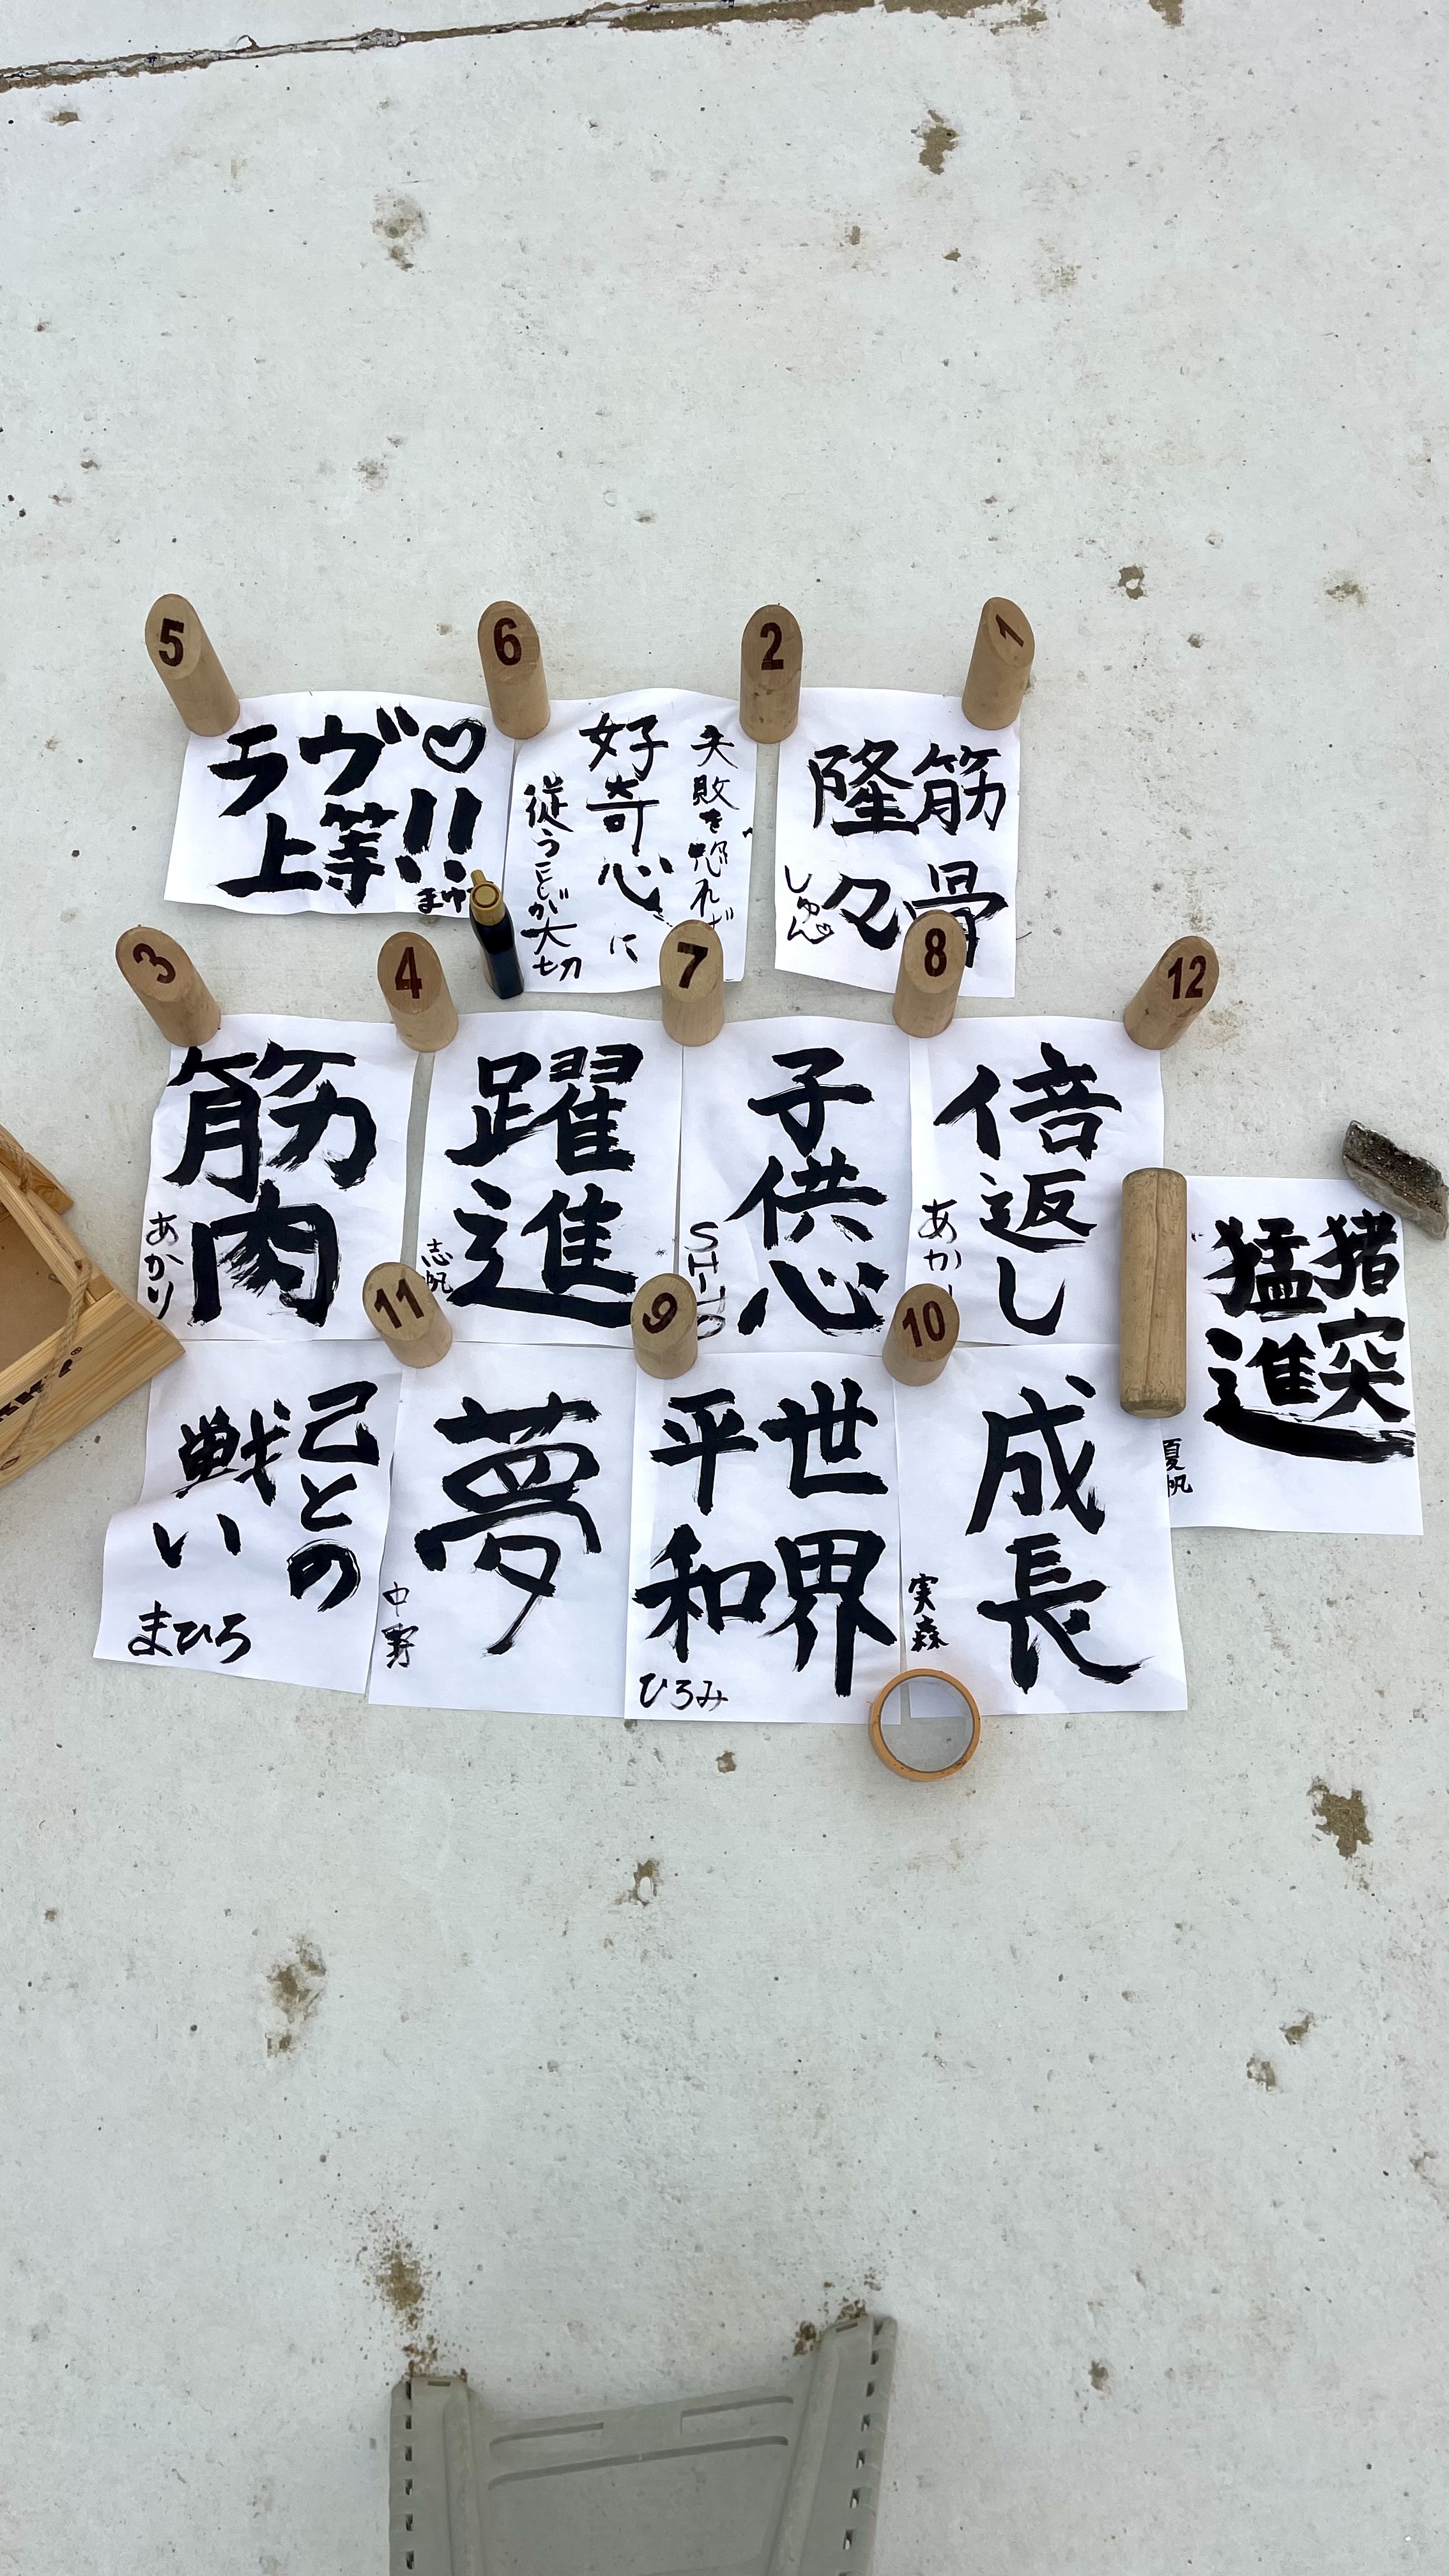 5
6
2
1
ラヴ♡
上等!!
まゆ
失敗を恐れず
好奇心に
従うことが大切
筋骨
隆々
しゅん
3
4
7
8
12
筋肉
あかり
躍進
志帆
子供心
倍返し
あか
猪突
猛進
夏帆
11
9
10
己との
戦い
まひろ
夢
中野
世界
平和
ひろみ
成長
実森